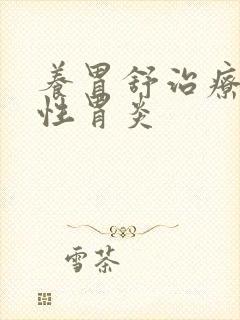 養胃舒治療
性胃炎
雪茶